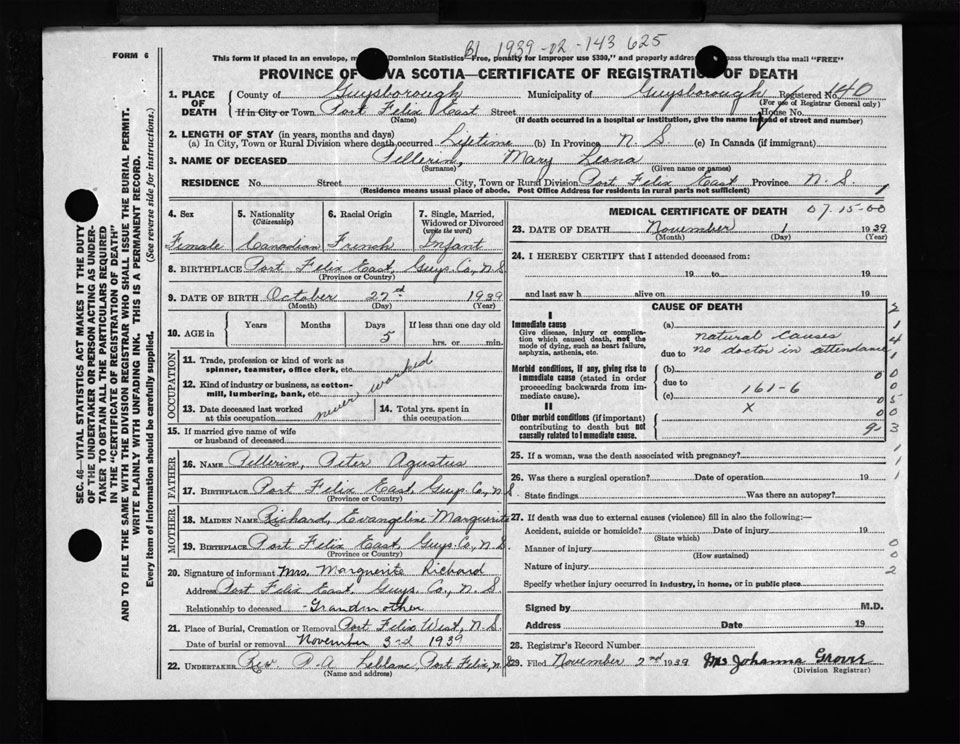 FORM 6
BI 1939-02-143 625
This form if placed in an envelope, m Dominion Statistics Free, penalty for improper use $300," and properly address pass through the mail "FREE"
PROVINCE OF VA SCOTIA—CERTIFICATE OF REGISTRATION OF DEATH
1. PLACE OF DEATH County of Guysborough Municipality of Guysborough Registered No. 40
(For use of Registrar General only)
If in City or Town Port Felix East Street House No.
(Name) (If death occurred in a hospital or institution, give the name instead of street and number)
2. LENGTH OF STAY (in years, months and days)
(a) In City, Town or Rural Division where death occurred Lifetime (b) In Province N. S. (c) In Canada (if immigrant)
3. NAME OF DECEASED Pellerin, Mary Leona
(Surname) (Given name or names)
RESIDENCE No. Street City, Town or Rural Division Port Felix East Province N. S. 1
(Residence means usual place of abode. Post Office Address for residents in rural parts not sufficient)
4. Sex Female
5. Nationality (Citizenship) Canadian
6. Racial Origin French
7. Single, Married, Widowed or Divorced (write the word) Infant
8. BIRTHPLACE Port Felix East, Guys. Co, N. S
(Province or Country)
9. DATE OF BIRTH October 27nd 1939
(Month) (Day) (Year)
10. AGE in Years Months Days 5 If less than one day old hrs. or min.
OCCUPATION
11. Trade, profession or kind of work as spinner, teamster, office clerk, etc.
12. Kind of industry or business, as cotton-mill, lumbering, bank, etc.
never worked
13. Date deceased last worked at this occupation
14. Total yrs. spent in this occupation
15. If married give name of wife or husband of deceased
FATHER
16. NAME Pellerin, Peter Agustus
17. BIRTHPLACE Port Felix East, Guys Co, N. S.
(Province or Country)
MOTHER
18. MAIDEN NAME Richard, Evangeline Marguerite
19. BIRTHPLACE Port Felix East, Guys. Co, N. S.
(Province or Country)
20. Signature of informant Mrs. Marguerite Richard
Address Port Felix East, Guys. Co., N. S
Relationship to deceased Grandmother
21. Place of Burial, Cremation or Removal Port Felix West, N. S.
Date of burial or removal November 3-d 1939
22. UNDERTAKER Rev. P-A Leblanc, Port Felix, N. S
(Name and address)
MEDICAL CERTIFICATE OF DEATH 07.15-00
23. DATE OF DEATH November 1 1939
(Month) (Day) (Year)
24. I HEREBY CERTIFY that I attended deceased from:
19 to 19
and last saw h alive on 19
CAUSE OF DEATH
I
Immediate cause
Give disease, injury or complication which caused death, not the mode of dying, such as heart failure, asphyxia, asthenia, etc.
(a) natural causes
due to no doctor in attendance
Morbid conditions, if any, giving rise to immediate cause (stated in order proceeding backwards from immediate cause).
(b)
due to 161-6
(c)
II
Other morbid conditions (if important) contributing to death but not causally related to immediate cause.
x
25. If a woman, was the death associated with pregnancy?
26. Was there a surgical operation? Date of operation 19
State findings Was there an autopsy?
27. If death was due to external causes (violence) fill in also the following:—
Accident, suicide or homicide? Date of injury 19
(State which)
Manner of injury
(How sustained)
Nature of injury
Specify whether injury occurred in industry, in home, or in public place
Signed by M.D.
Address Date 19
28. Registrar's Record Number
29. Filed November 2nd 1939 Mrs Johanna Grover
(Division Registrar)
SEC. 46—VITAL STATISTICS ACT MAKES IT THE DUTY
OF THE UNDERTAKER OR PERSON ACTING AS UNDER-
TAKER TO OBTAIN ALL THE PARTICULARS REQUIRED
IN THE "CERTIFICATE OF REGISTRATION OF DEATH"
AND TO FILE THE SAME WITH THE DIVISION REGISTRAR WHO SHALL ISSUE THE BURIAL PERMIT.
WRITE PLAINLY WITH UNFADING INK. THIS IS A PERMANENT RECORD.
Every item of information should be carefully supplied. (See reverse side for instructions.)